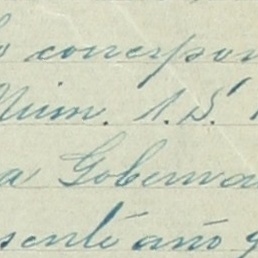 o correspon
Núm. 1.S.
a Goberna
sente año